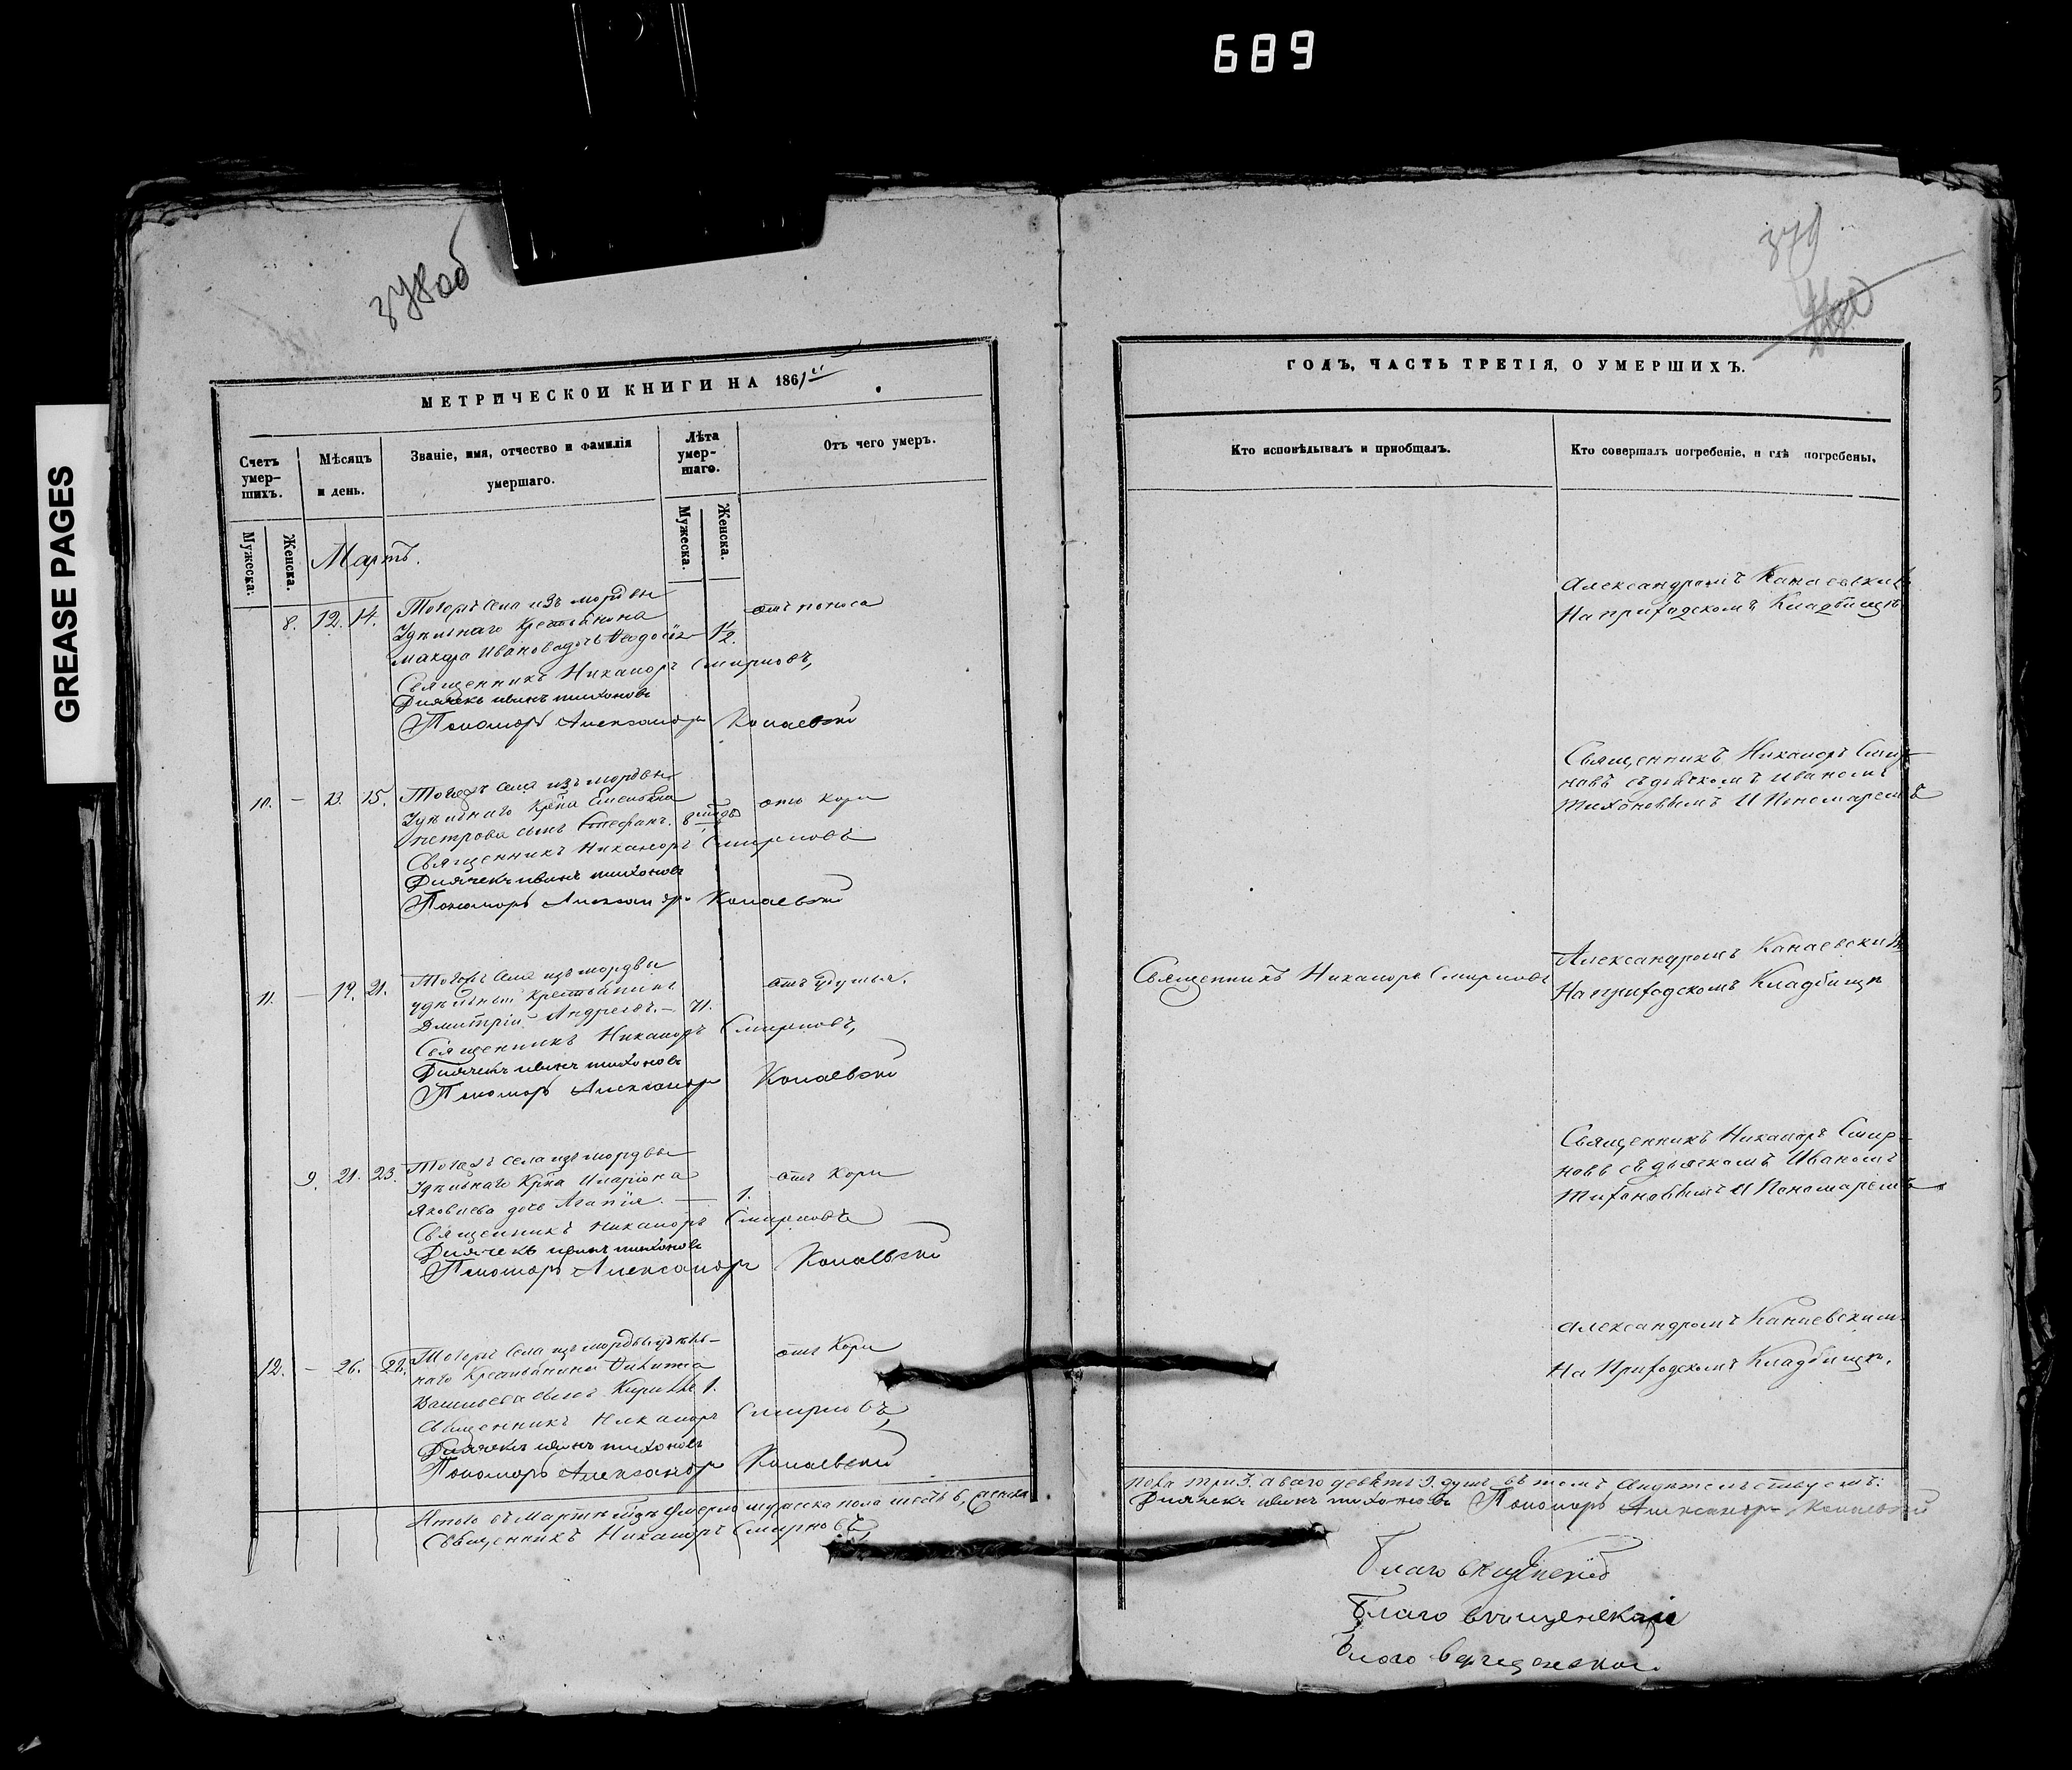 689
GREASE PAGES
378об
379
МЕТРИЧЕСКОЙ КНИГИ НА 1861
ГОДЪ, ЧАСТЬ ТРЕТІЯ, О УМЕРШИХЪ.
Счетъ умер-шихъ.
Мѣсяцъ и день.
Званіе, имя, отчество и фамилія умершаго.
Лѣта умер-шаго.
Отъ чего умеръ.
Кто исповѣдывалъ и пріобщалъ.
Кто совершалъ погребеніе, и гдѣ погребены.
Мужеска.
Женска.
Мужеска.
Женска.
Мартъ.
8. 12. 14. Тогожъ села изъ мордвы
удѣльнаго крестьянина
Макара Иванова дочь Ѳеодосія 1/2. отъ поноса
Священникъ Никаноръ Смирновъ,
Дьячекъ Иванъ Тихоновъ
Пономарь Александръ Канаевскій
Александромъ Канаевскимъ
На приходскомъ кладбищѣ
10. – 13. 15. Тогожъ села изъ мордвы
удѣльнаго крѣна Емельяна
Петрова сынъ Стефанъ. отъ кори
Священникъ Никаноръ Смирновъ
Дьячекъ Иванъ Тихоновъ
Пономарь Александръ Канаевскій
Священникъ Никаноръ Смир-
новъ съ дьячкомъ Иваномъ
Тихоновымъ И Пономаремъ
11. – 19. 21. Тогожъ села изъ мордвы
удѣльный крестьянинъ
Дмитрій Андреевъ. – 71. отъ удушья.
Священникъ Никаноръ Смирновъ,
Дьячекъ Иванъ Тихоновъ
Пономарь Александръ Канаевскій
Священникъ Никаноръ Смирновъ
Александромъ Канаевскимъ
На приходскомъ кладбищѣ
9. 21. 23. Тогожъ села изъ мордвы
удѣльнаго крѣна Иларіона
Яковлева дочь Агапія. – 1. отъ кори
Священникъ Никаноръ Смирновъ
Дьячекъ Иванъ Тихоновъ
Пономарь Александръ Канаевскій
Священникъ Никаноръ Смир-
новъ съ дьячкомъ Иваномъ
Тихоновымъ И Пономаремъ
12. – 26. 28. Тогожъ села изъ мордвы удѣль-
наго крестьянина
Васильева сынъ 1. отъ кори
Священникъ Никаноръ Смирновъ,
Дьячекъ Иванъ Тихоновъ
Пономарь Александръ Канаевскій
Александромъ Канаевскимъ
На Приходскомъ кладбищѣ.
Итого въ Мартѣ м-цѣ умерло мужеска пола шесть 6, женска
Священникъ Никаноръ Смирновъ,
пола три 3. а всего девять 9. душъ, въ томъ свидѣтельствуемъ:
Дьячекъ Иванъ Тихоновъ Пономарь Александръ Канаевскій
Благовѣщенскій
Благовѣщенскій